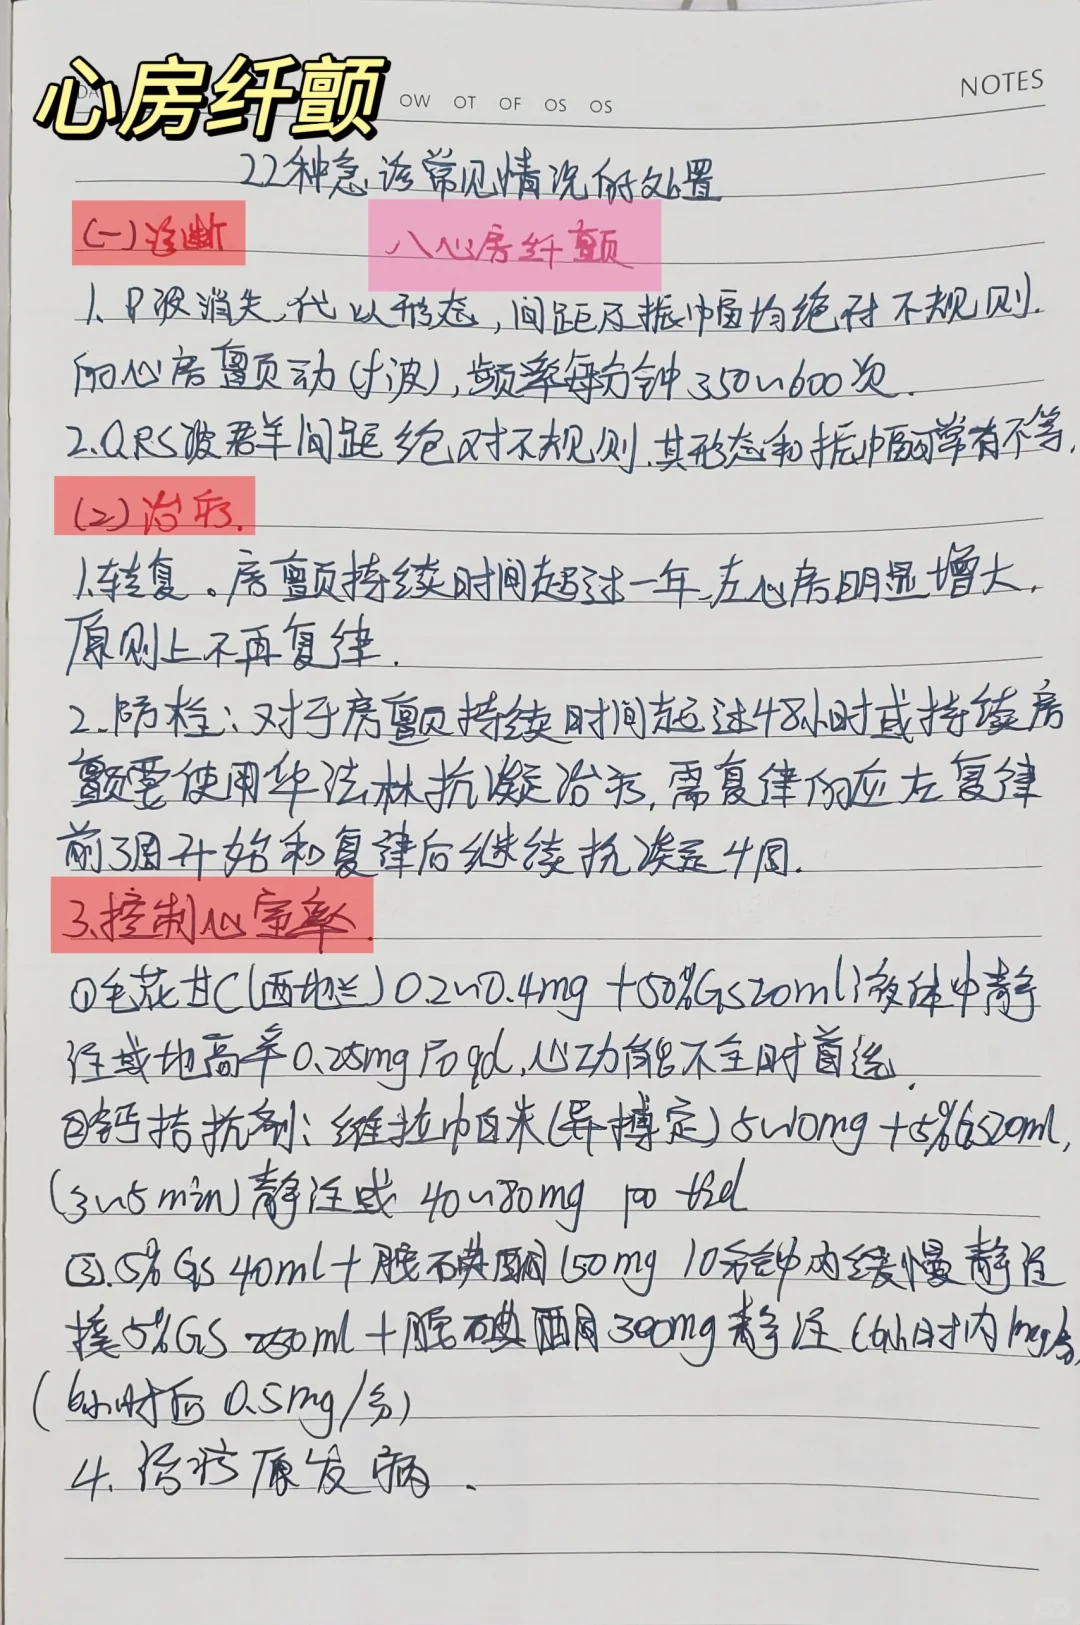 心房纤颤
OW OT OF OS OS
NOTES
22种急诊常见情况的处置
(一)诊断
八心房纤颤
1.P波消失,代以形态,间距及振幅均绝对不规则.
的心房颤动(f波),频率每分钟350~600次.
2.QRS波群间距绝对不规则,其形态和振幅可常有不等,
(2)治疗.
1.转复。房颤持续时间超过一年,左心房明显增大,
原则上不再复律.
2.防栓:对于房颤持续时间超过48小时或持续房
颤要使用华法林抗凝治疗,需复律的应在复律
前3周开始和复律后继续抗凝4周.
3.控制心室率.
①毛花甘C(西地兰)0.2~0.4mg+50%GS20ml液体中静
注或地高辛0.25mg Po qd,心功能不全时首选.
②钙拮抗剂:维拉帕米(异搏定)5~10mg+5%GS20ml,
(3~5min)静注或 40~80mg po tid
③.5%GS 40ml+胺碘酮150mg 10分钟内缓慢静注
接5%GS 250ml+胺碘酮300mg静注(6小时内1mg/分,
(6小时后 0.5mg/分)
4.治疗原发病.